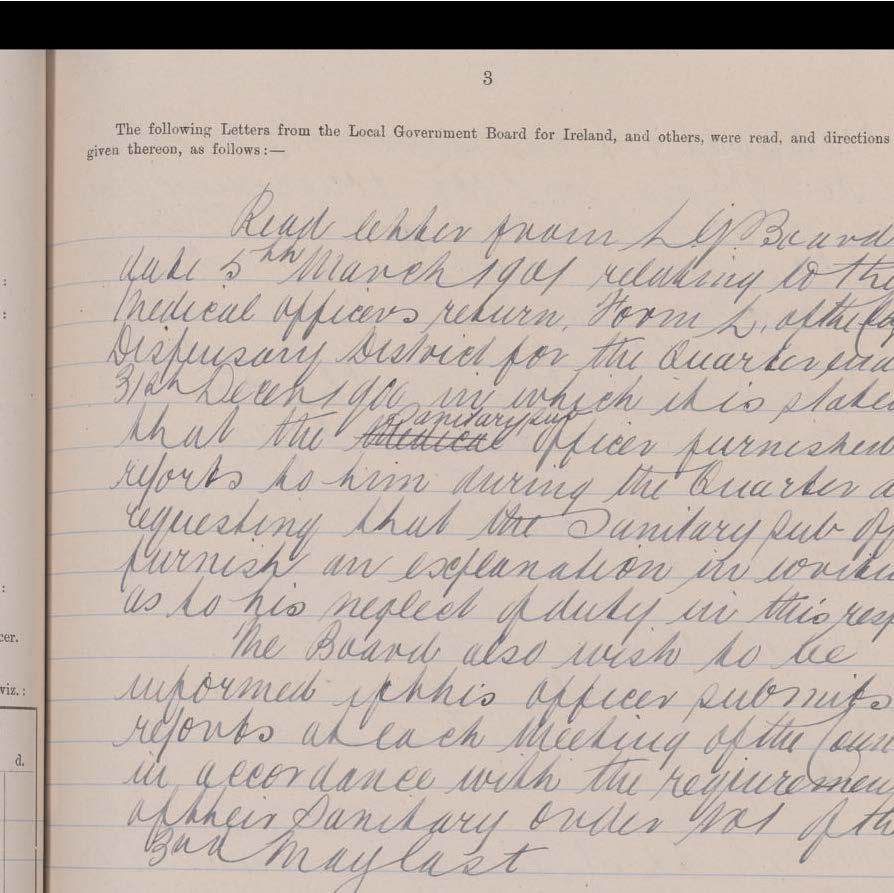 :
:
:
cer.
viz. :
d.
3
The following Letters from the Local Government Board for Ireland, and others, were read, and directions
given thereon, as follows:—
Read letter from L G Board
date 5th March 1901 relating to the
Medical Officers return, Form L, of the
Dispensary District for the Quarter
31th Decem 1900 in which it is state
Sanitary sub
that the Medical Officer furnished
reports to him during the Quarter a
requesting that the Sanitary sub Of
furnish an explanation in
as to his neglect of duty in this resp
The Board also wish to be
informed if this officer submits
reports at each Meeting of the Coun
in accordance with the requiremen
of their Sanitary Order No1 of th
3rd May last